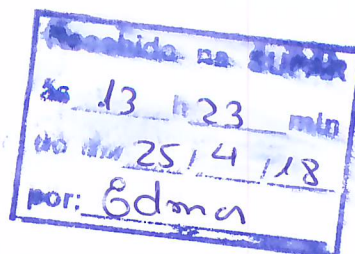 Recebido na
às 13 h 23 min
do dia 25, 4, 18
por: Edma